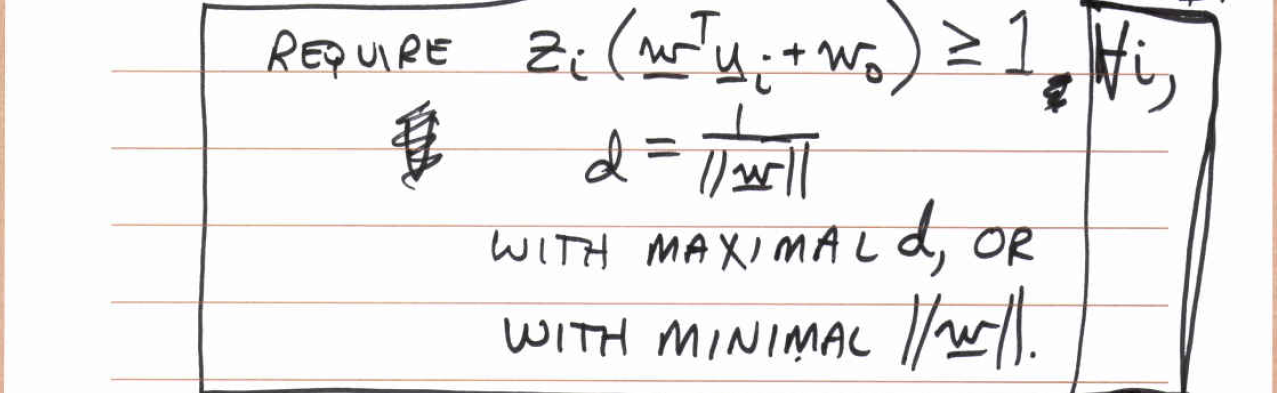 REQUIRE z_i (w^T u_i + w_0) ≥ 1 ∀i,
d = 1/||w||
WITH MAXIMAL d, OR
WITH MINIMAL ||w||.